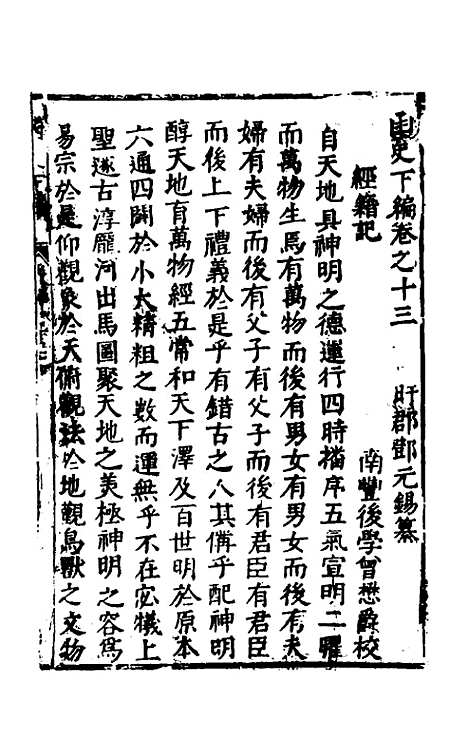 函史下編卷之十三
盱郡鄧元錫纂
經籍記
南豐後學曾懋爵校
自天地具神明之德運行四時播序五氣宣明二曜
而萬物生焉有萬物而後有男女有男女而後有夫
婦有夫婦而後有父子有父子而後有君臣有君臣
而後上下禮義於是乎有錯古之人其俻乎配神明
醇天地育萬物經五常和天下澤及百世明於原本
六通四闢於小大精粗之數而運無乎不在宓犧上
聖遂古淳龐河出馬圖聚天地之美極神明之容爲
易宗於是仰觀象於天俯觀法於地觀鳥獸之文物